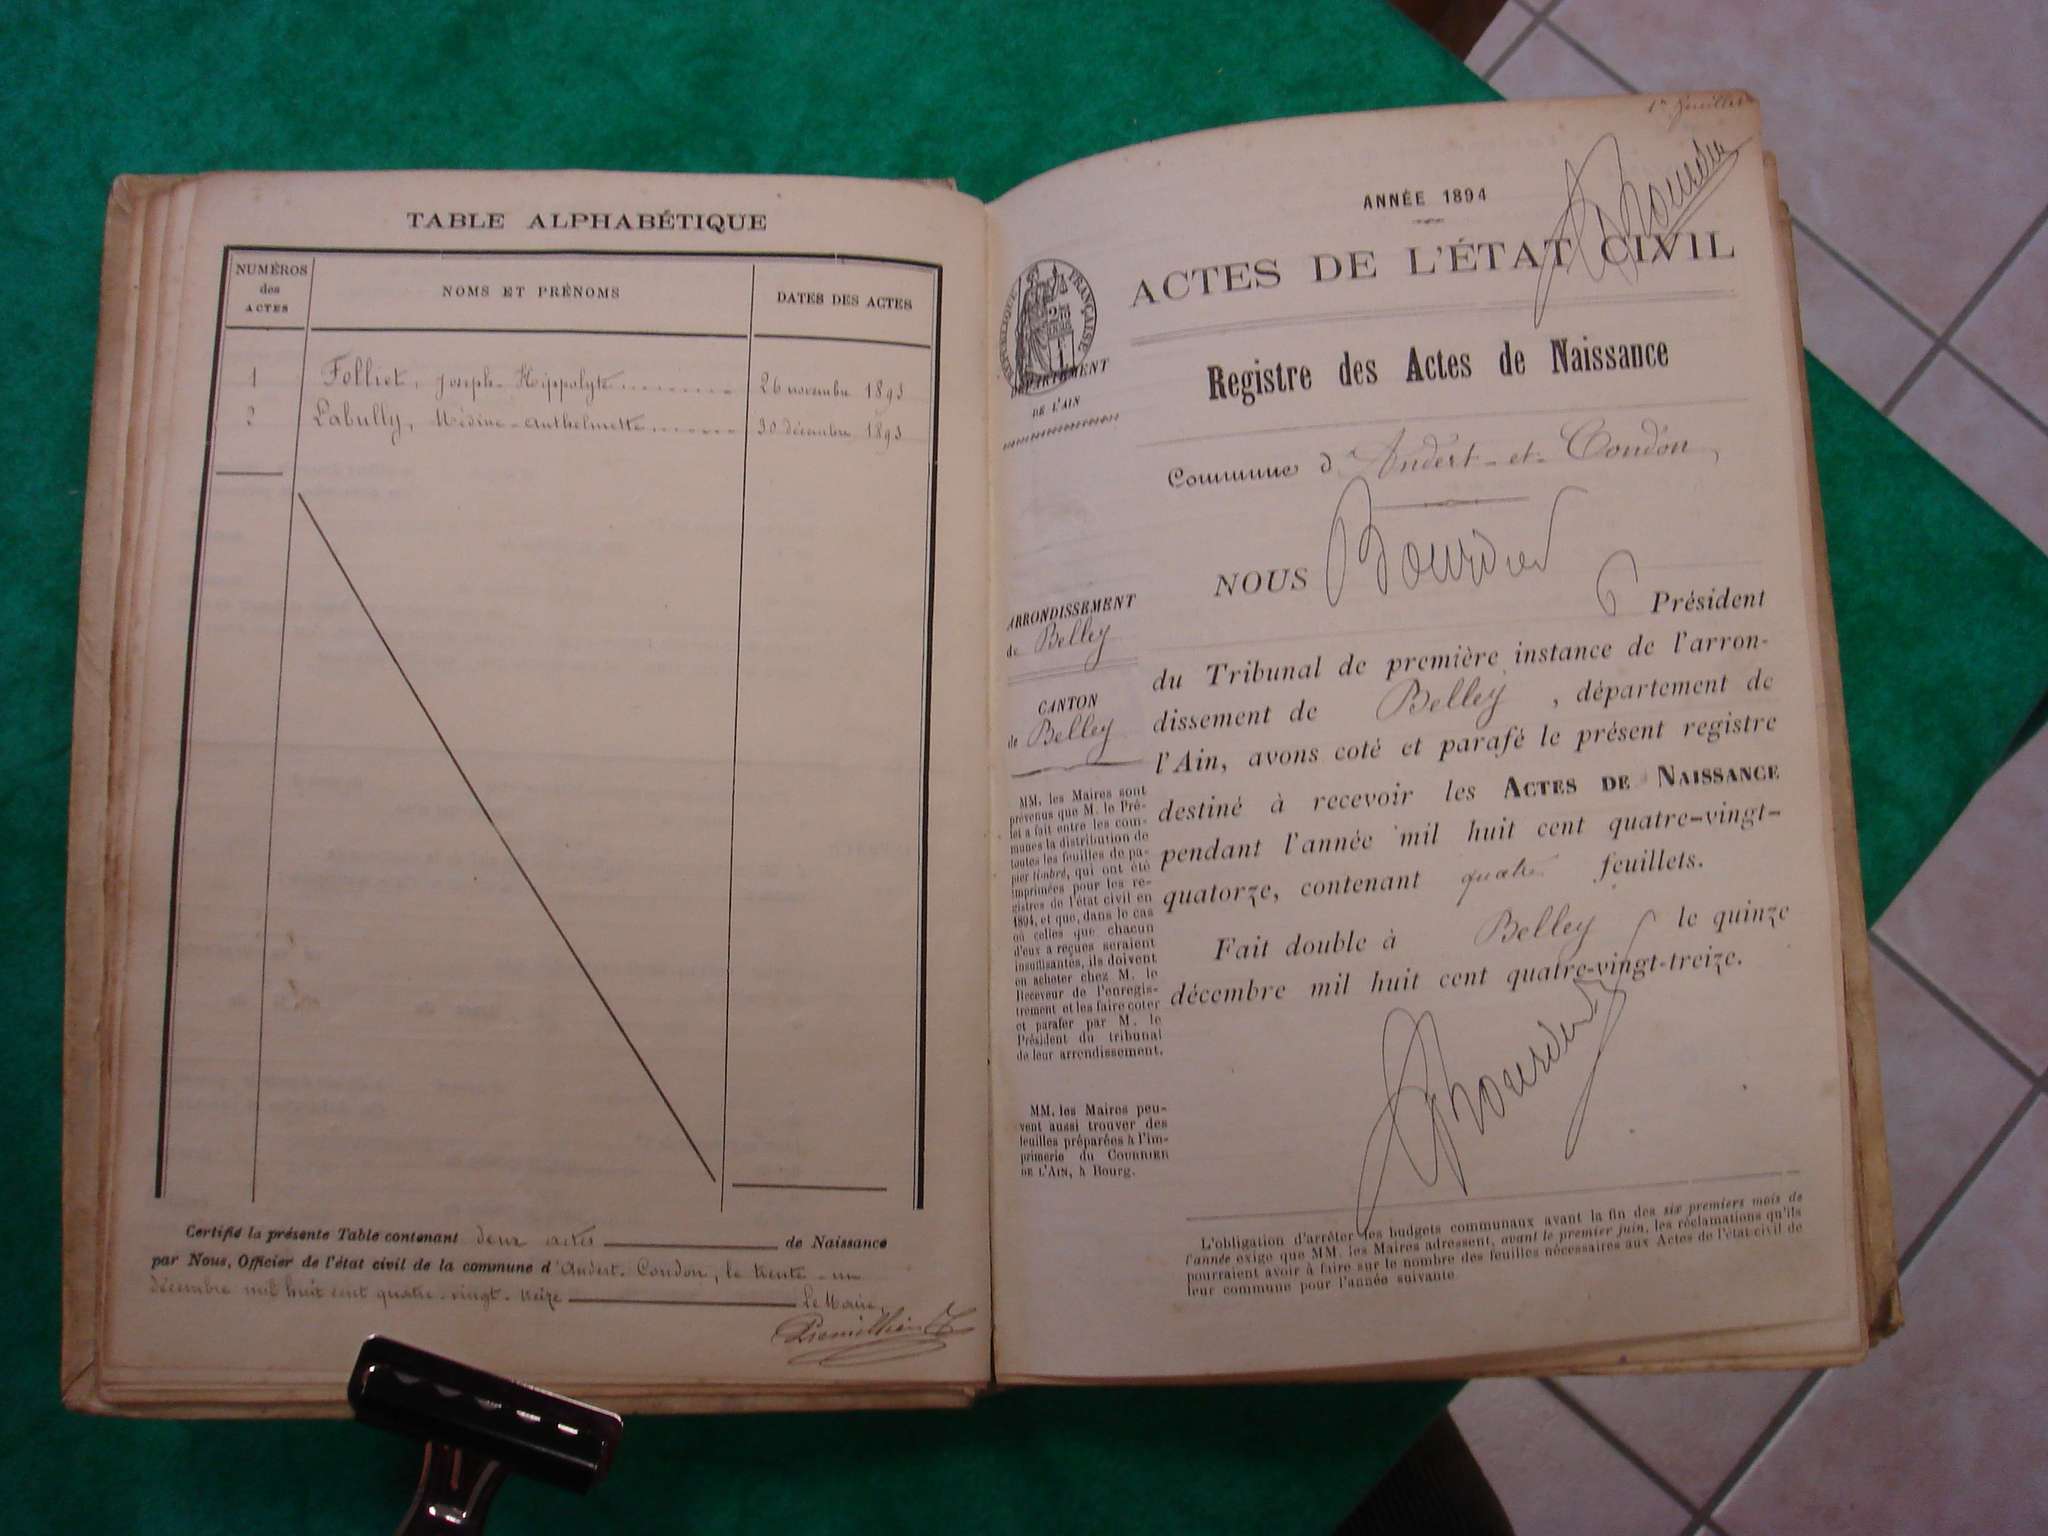 TABLE ALPHABÉTIQUE
NUMÉROS
des
ACTES
NOMS ET PRÉNOMS
DATES DES ACTES
1 Folliet, Joseph-Hippolyte 26 novembre 1893
2 Labully, Médine-Anthelmette 30 décembre 1893
Certifié la présente Table contenant deux actes de Naissance
par Nous, Officier de l'état civil de la commune d'Andert-Condon, le trente-un
décembre mil huit cent quatre-vingt-treize Le Maire,
1er feuillet
ANNÉE 1894
ACTES DE L'ÉTAT CIVIL
RÉPUBLIQUE FRANÇAISE
DÉPARTEMENT
DE L'AIN
Registre des Actes de Naissance
Commune d'Andert-et-Condon,
NOUS Bourdin
Président
ARRONDISSEMENT
de Belley
CANTON
de Belley
du Tribunal de première instance de l'arron-
dissement de Belley, département de
l'Ain, avons coté et parafé le présent registre
destiné à recevoir les ACTES DE NAISSANCE
pendant l'année mil huit cent quatre-vingt-
quatorze, contenant quatre feuillets.
Fait double à Belley le quinze
décembre mil huit cent quatre-vingt-treize.
MM. les Maires sont
prévenus que M. le Pré-
fet a fait entre les com-
munes la distribution de
toutes les feuilles de pa-
pier timbré, qui ont été
imprimées pour les re-
gistres de l'état civil en
1894, et que, dans le cas
où celles que chacun
d'eux a reçues seraient
insuffisantes, ils doivent
en acheter chez M. le
Receveur de l'enregis-
trement et les faire coter
et parafer par M. le
Président du tribunal
de leur arrondissement.
MM. les Maires peu-
vent aussi trouver des
feuilles préparées à l'im-
primerie du COURRIER
DE L'AIN, à Bourg.
L'obligation d'arrêter les budgets communaux avant la fin des six premiers mois de
l'année exige que MM. les Maires adressent, avant le premier juin, les réclamations qu'ils
pourraient avoir à faire sur le nombre des feuilles nécessaires aux Actes de l'état civil de
leur commune pour l'année suivante